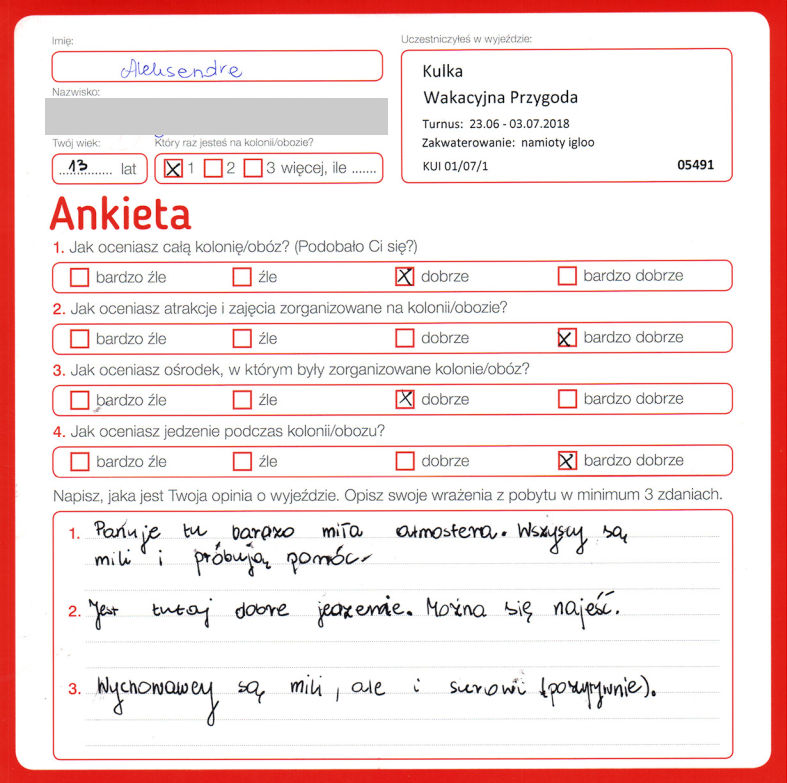 Imię:
Aleksandra
Nazwisko:
Twój wiek:
13 lat
Który raz jesteś na kolonii/obozie?
1 2 3 więcej, ile .......
Uczestniczyłeś w wyjeździe:
Kulka
Wakacyjna Przygoda
Turnus: 23.06 - 03.07.2018
Zakwaterowanie: namioty igloo
KUI 01/07/1 05491
Ankieta
1. Jak oceniasz całą kolonię/obóz? (Podobało Ci się?)
bardzo źle źle dobrze bardzo dobrze
2. Jak oceniasz atrakcje i zajęcia zorganizowane na kolonii/obozie?
bardzo źle źle dobrze bardzo dobrze
3. Jak oceniasz ośrodek, w którym były zorganizowane kolonie/obóz?
bardzo źle źle dobrze bardzo dobrze
4. Jak oceniasz jedzenie podczas kolonii/obozu?
bardzo źle źle dobrze bardzo dobrze
Napisz, jaka jest Twoja opinia o wyjeździe. Opisz swoje wrażenia z pobytu w minimum 3 zdaniach.
1. Panuje tu bardzo miła atmosfera. Wszyscy są
mili i próbują pomóc.
2. Jest tutaj dobre jedzenie. Można się najeść.
3. Wychowawcy są mili, ale i surowi (pozytywnie).